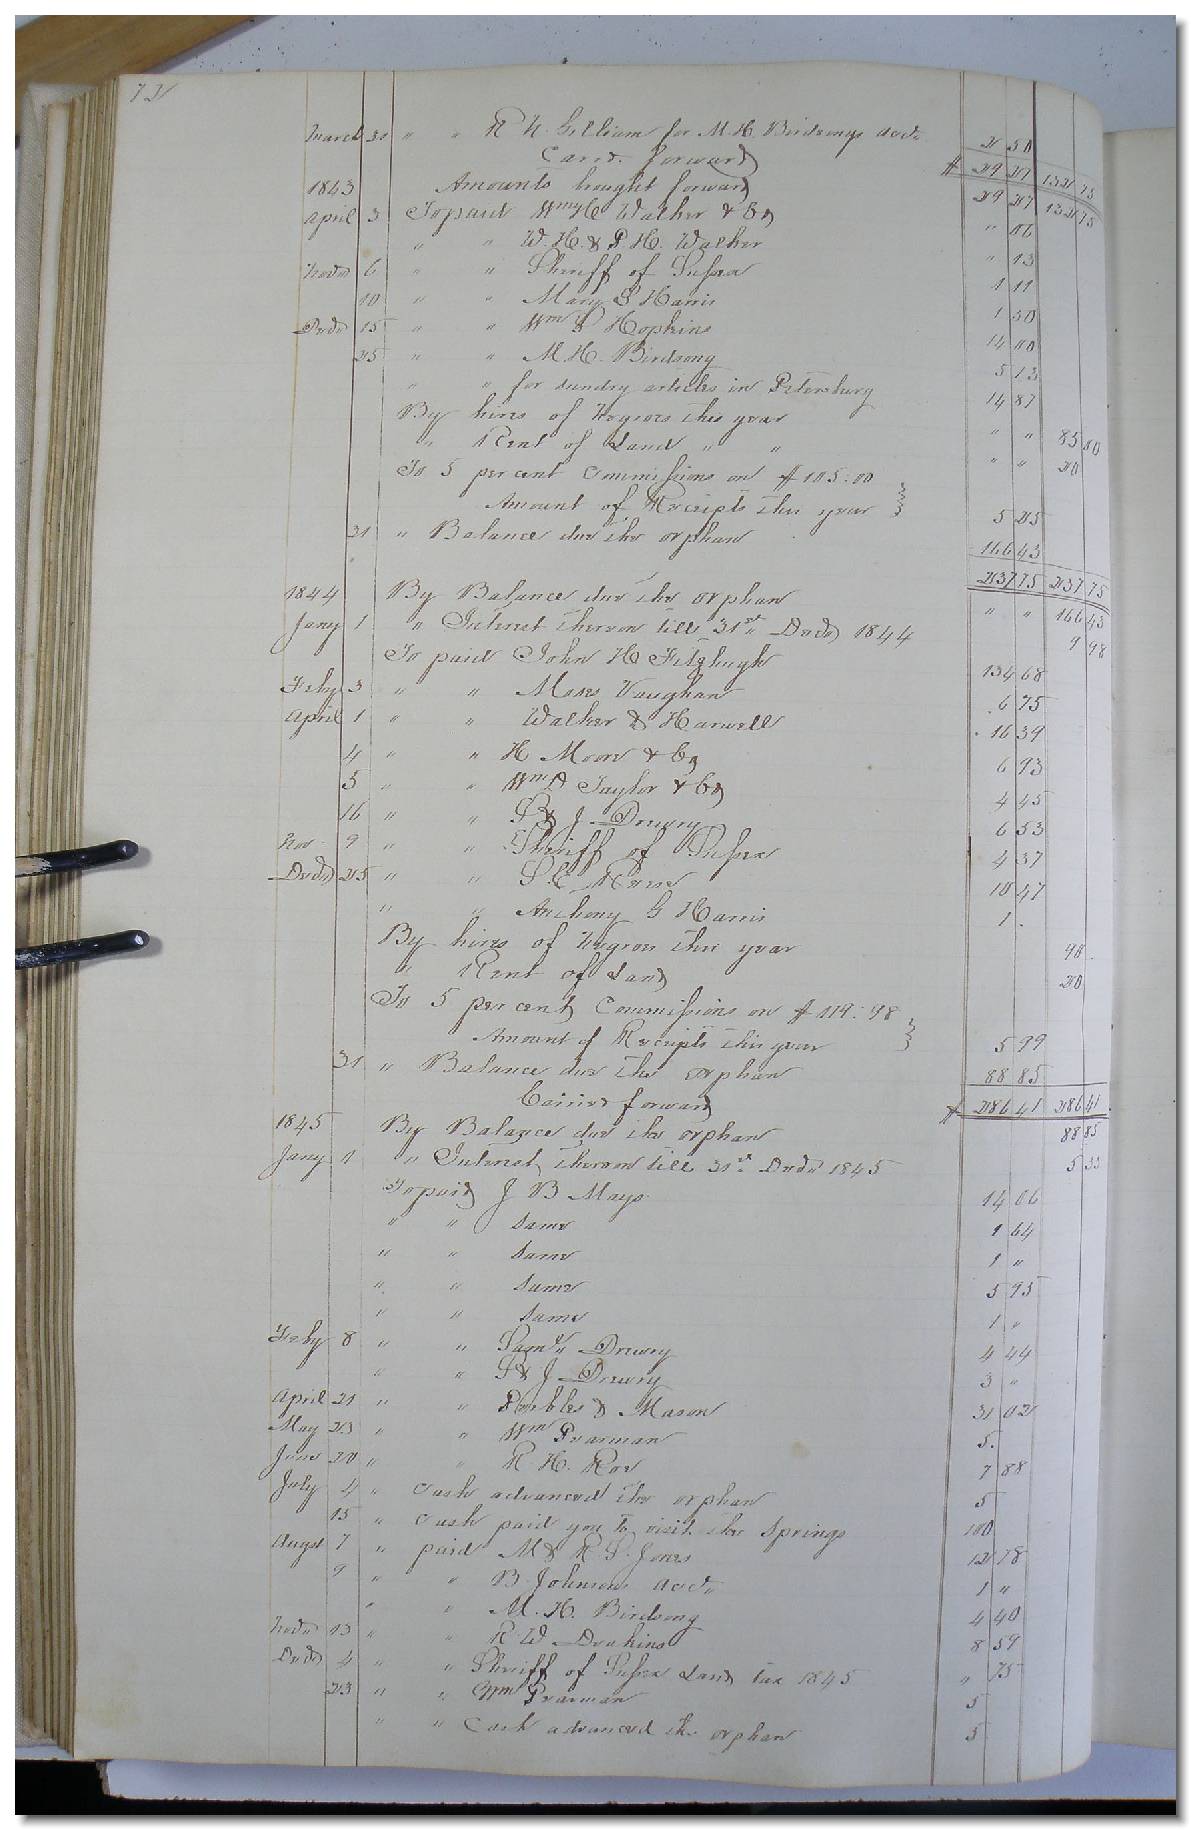 72
March 30 " " R H. Gilliam for M. H. Birdsongs acct. 2 50
Card. forward $ 29 27 132 75
1843 Amounts bought forward 29 27 132 75
April 3 To paid Wm H Walker & Co " 06
" " W. H. & P. H. Walker " 13
Novr 6 " " Sheriff of Sussex 1 11
10 " " Mary S Harris 1 50
Decr 15 " " Wm S Hopkins 14 00
25 " " M. H. Birdsong 5 13
" " for sundry articles in Petersburg 14 87
By hires of Negroes this year " " 85 00
" Rent of Land " " " " 20
To 5 per cent Commissions on $105:00
Amount of Receipts this year 5 25
31 " Balance due the orphan 166 43
237 75 237 75
1844 By Balance due the orphan " " 166 43
Jany 1 " Interest thereon till 31st Decr 1844 9 98
To paid John H Fitzhugh 134 68
Feby 3 " " Moses Vaughan 6 75
April 1 " " Walker & Harwell 16 39
4 " " H Moore & Co 6 93
5 " " Wm A Taylor & Co 4 45
16 " " S & J Drewry 6 53
Nov 9 " " Sheriff of Sussex 4 37
Decr 25 " " S. E. 10 47
" " Anthony G Harris 1 .
By hires of Negroes this year 90 .
" Rent of Land 20
To 5 per cent Commissions on $119:98
Amount of Receipts this year 5 99
31 " Balance due the orphan 88 85
Carried forward $ 286 41 286 41
1845 By Balance due the orphan 88 85
Jany 1 " Interest thereon till 31st Decr 1845 5 33
To paid J B Mays 14 06
" " same 1 64
" " same 1 "
" " same 5 95
" " same 1 "
Feby 8 " " Saml Drewry 4 44
" " S & J Drewry 3 "
April 21 " " Peebles & Mason 31 02
May 23 " " Wm Pearman 5.
June 20 " " R H. Roe 7 88
July 4 " Cash advanced the orphan 5
15 " Cash paid you to visit the Springs 100
Augst 7 " paid M & R S. Jones 12 78
9 " " B Johnsons acct. 1 "
" " M. H. Birdsong 4 40
Novr 13 " " R W Deakins 8 59
Decr 4 " " Sheriff of Sussex Land tax 1845 " 75
23 " " Wm Pearman 5
" " Cash advanced the orphan 5